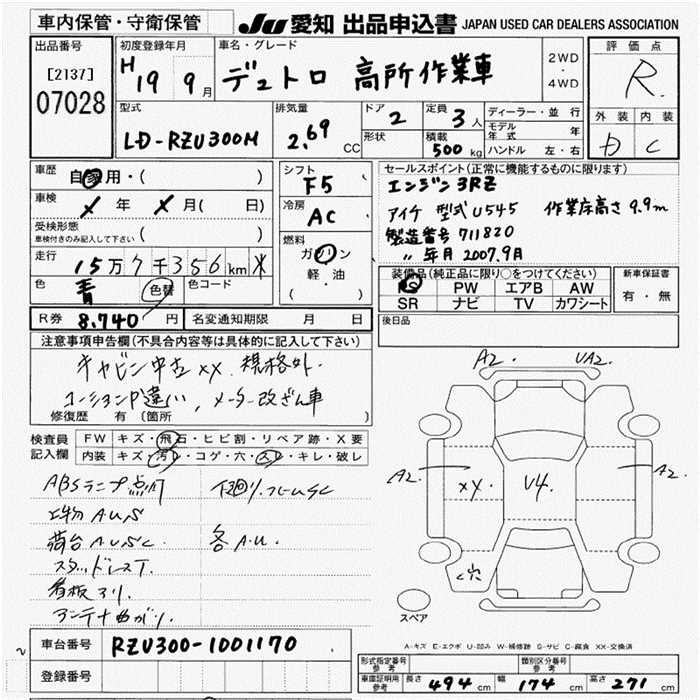 車内保管・守衛保管
JU 愛知 出品申込書 JAPAN USED CAR DEALERS ASSOCIATION
出品番号
[2137]
07028
初度登録年月
H 19 9月
車名・グレード
デュトロ 高所作業車
2WD
・
4WD
評価点
R.
外装 内装
D C
型式
LD-RZU300M
排気量
2.69 CC
ドア 2
形状
定員 3人
積載 500kg
ディーラー・並行
モデル年式 年
ハンドル 左・右
車歴 自家用・( )
車検 X年 X月( 日)
受検形態
車検付きのみ記入して下さい ( )
走行 15万7千356km
色 青 色替 色コード
シフト F5
冷房 AC
燃料
ガソリン
軽・油
( )
セールスポイント(正常に機能するものに限ります)
エンジン3RZ
アイチ 型式U545 作業床高さ9.9m
製造番号711820
〃 年月2007.9月
装備品(純正品に限り○をつけてください)
PS PW エアB AW
SR ナビ TV カワシート
新車保証書
有・無
R券 8,740円 名変通知期限 月 日
後日品
注意事項申告欄(不具合内容等は具体的に記入して下さい)
キャビン中古XX. 規格外.
コーションP違い, メーター改ざん車
修復歴 有(箇所 )
検査員記入欄
FW キズ・飛石・ヒビ割・リペア跡・X要
内装 キズ・汚レ・コゲ・穴・スレ・キレ・破レ
ABSランプ点灯 下廻り.フレームSC
上物AUS
荷台AUSC. 各A.U.
スタッドレスT.
看板アリ.
アンテナ曲がり.
A2. UA2.
A2. XX. U4. A2.
穴
スペア
A-キズ E-エクボ U-凹み W-補修跡 S-サビ C-腐食 XX-交換済
車台番号 RZU300-1001170
登録番号
型式指定番号
参考
類別区分番号
参考
車庫証明用
参考
長さ 494cm 幅 174cm 高さ 271cm